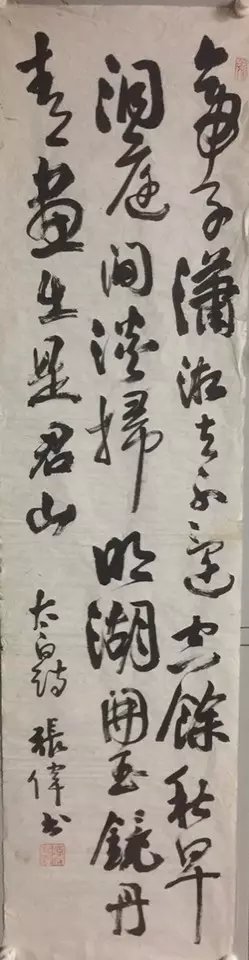 帝子瀟湘去不還空餘秋草
洞庭間淡掃明湖開玉鏡丹
青畫出是君山
太白詩 張偉書